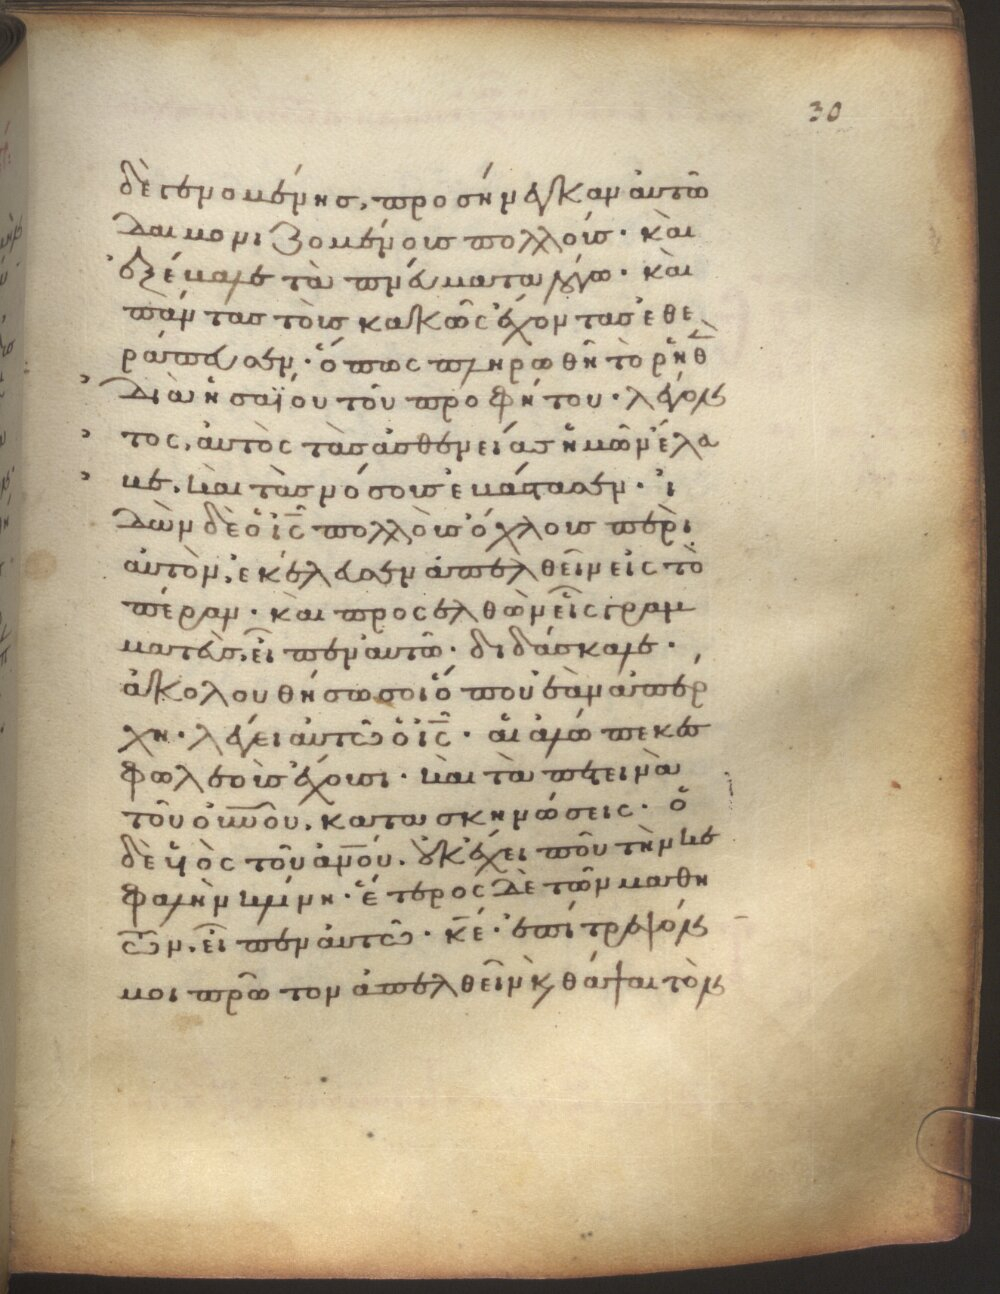 30
δὲ γενομένης, προσήνεγκαν αὐτῶ
δαιμονιζομένοις πολλοῖς· καὶ
ἐξέβαλε τὰ πνεύματα λόγω· καὶ
πάντας τοὺς κακῶς ἔχοντας ἐθε
ράπευσεν· ὅπως πληρωθῆ τὸ ῥηθ
διὰ ἠσαΐου τοῦ προφήτου· λέγον
τος, αὐτὸς τὰς ἀσθενείας ἡμῶν ἔλα
βε, καὶ τὰς νόσους ἐβάστασεν· ἰ
δὼν δὲ ὁ ις̅ πολλοὺς ὄχλους περὶ
αὐτὸν, ἐκέλευσεν ἀπελθεῖν εἰς τὸ
πέραν· καὶ προσελθὼν εἷς γραμ
ματεὺς, εἶπεν αὐτῶ· διδάσκαλε·
ἀκολουθήσω σοι ὅπου ἐὰν ἀπέρ
χη· λέγει αὐτῶ ὁ ις̅· αἱ ἀλώπεκες
φωλεοὺς ἔχουσι· καὶ τὰ πετεινὰ
τοῦ οὐνοῦ, κατασκηνώσεις· ὁ
δὲ υἱὸς τοῦ ἀνου, οὐκ ἔχει ποῦ τὴν κε
φαλὴν κλίνη· ἕτερος δὲ τῶν μαθη
τῶν, εἶπεν αὐτῶ· κε̅· ἐπίτρεψόν
μοι πρῶτον ἀπελθεῖν κ θάψαι τὸν